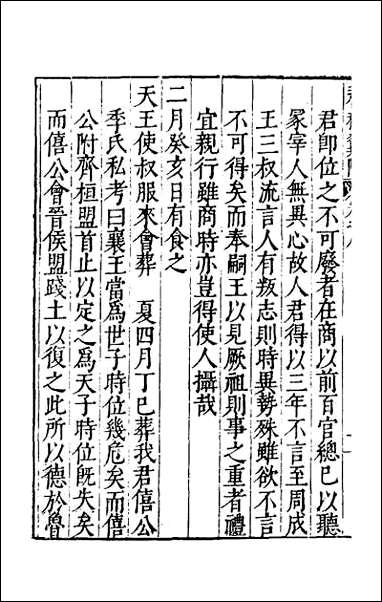 君卽位之不可廢者在商以前百官總已以聽
冢宰人無異心故人君得以三年不言至周成
王三叔流言人有叛志則時異勢殊雖欲不言
不可得矣而奉嗣王以見厥祖則事之重者禮
宜親行雖商時亦豈得使人攝哉
二月癸亥日有食之
天王使叔服來會葬　夏四月丁巳葬我君僖公
季氏私考曰襄王當爲世子時位幾危矣而僖
公附齊桓盟首止以定之爲天子時位旣失矣
而僖公會晉侯盟踐土以復之此所以德於魯